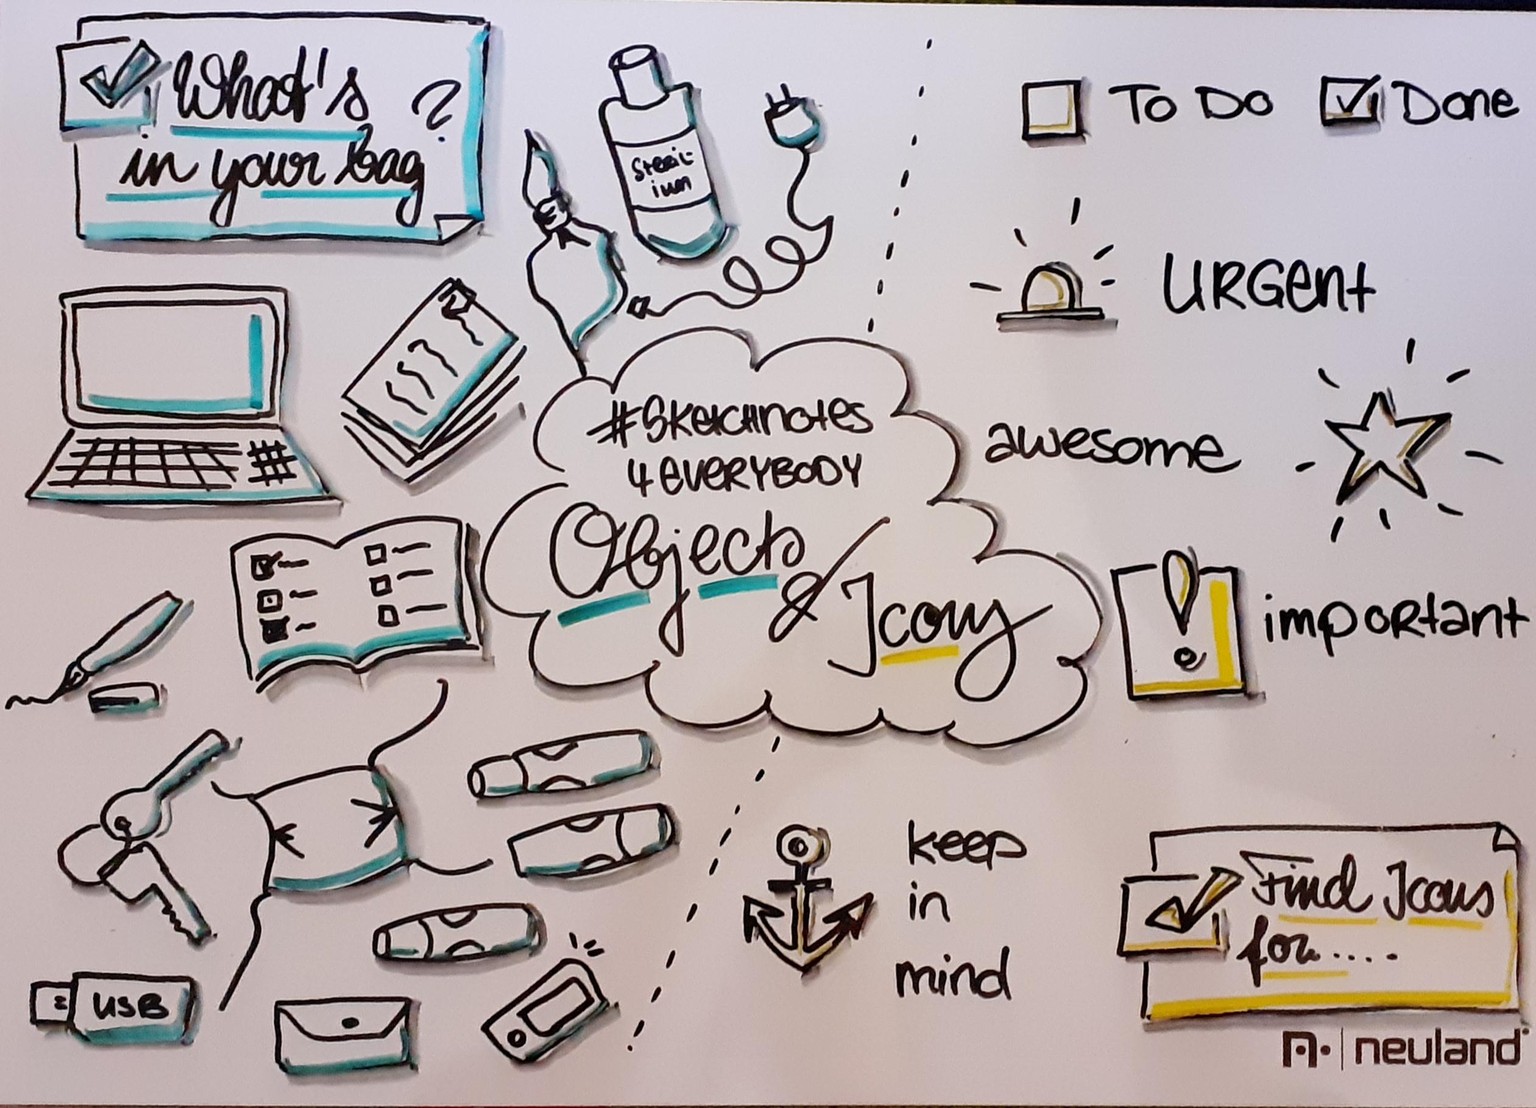 What's ?
in your bag
Steril-
ium
#Sketchnotes
4 EVERYBODY
Objects
& Icons
USB
To Do
Done
URGENT
awesome
important
keep
in
mind
Find Icons
for.....
neuland